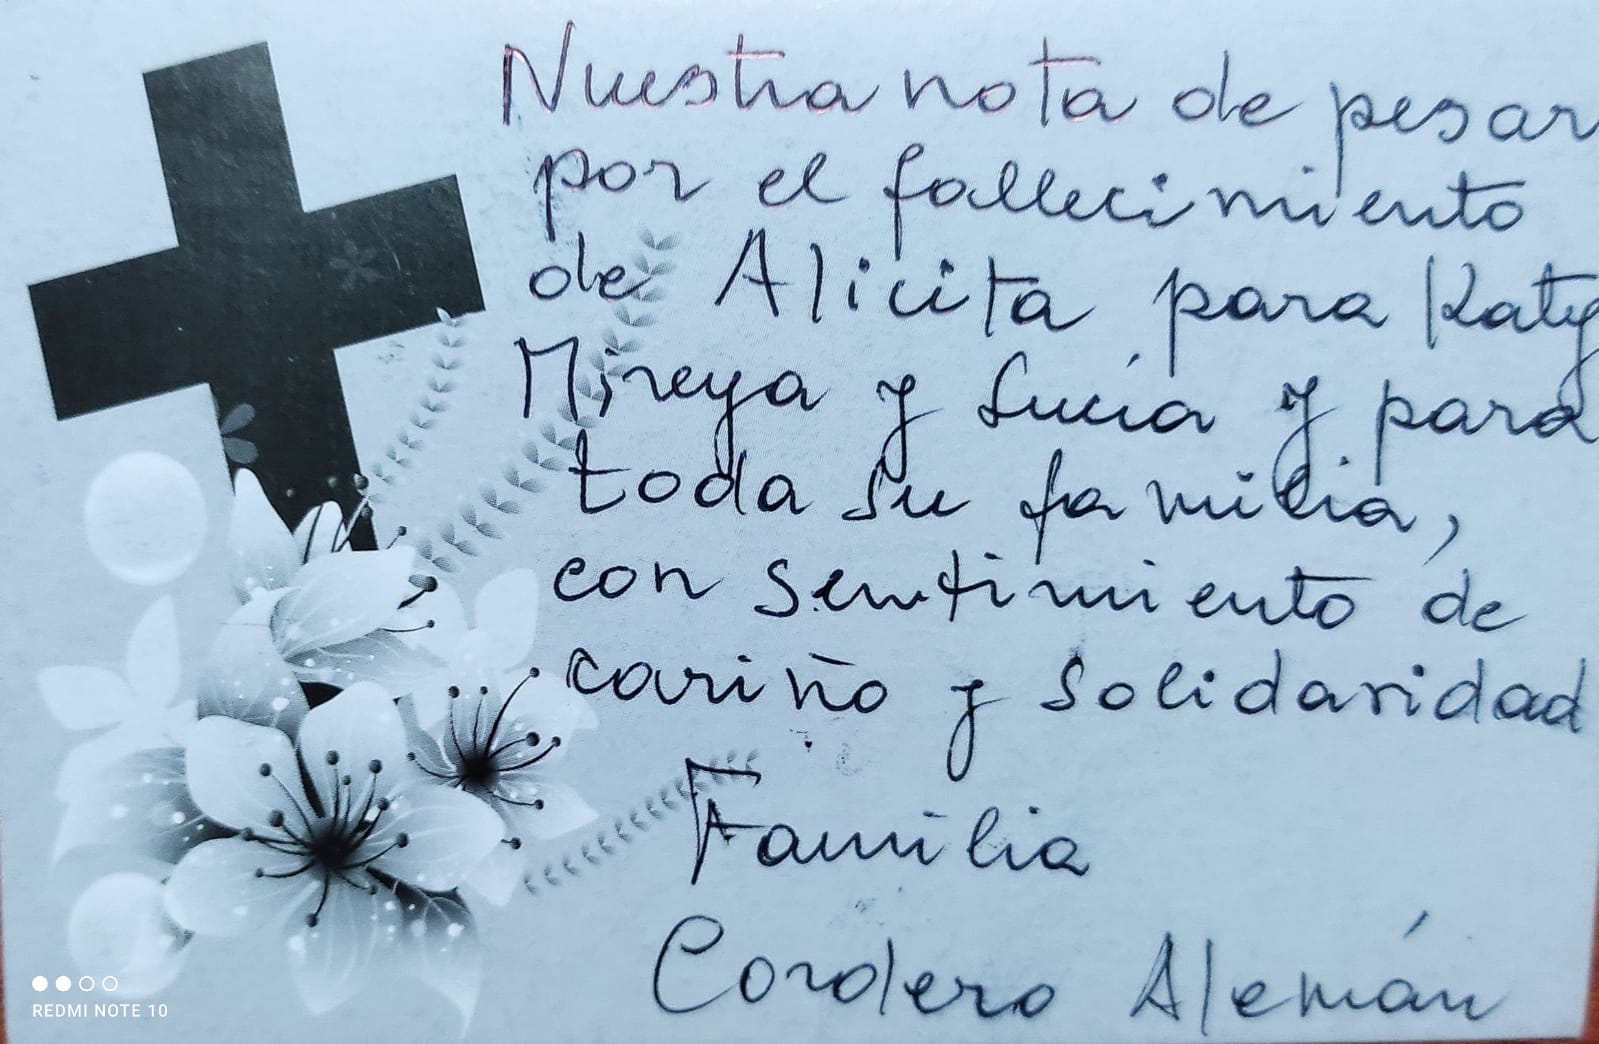 Nuestra nota de pesar
por el fallecimiento
de Alicita para Katy
Mireya y Lucía y para
toda su familia,
con sentimiento de
cariño y solidaridad
Familia
Cordero Alemán
REDMI NOTE 10